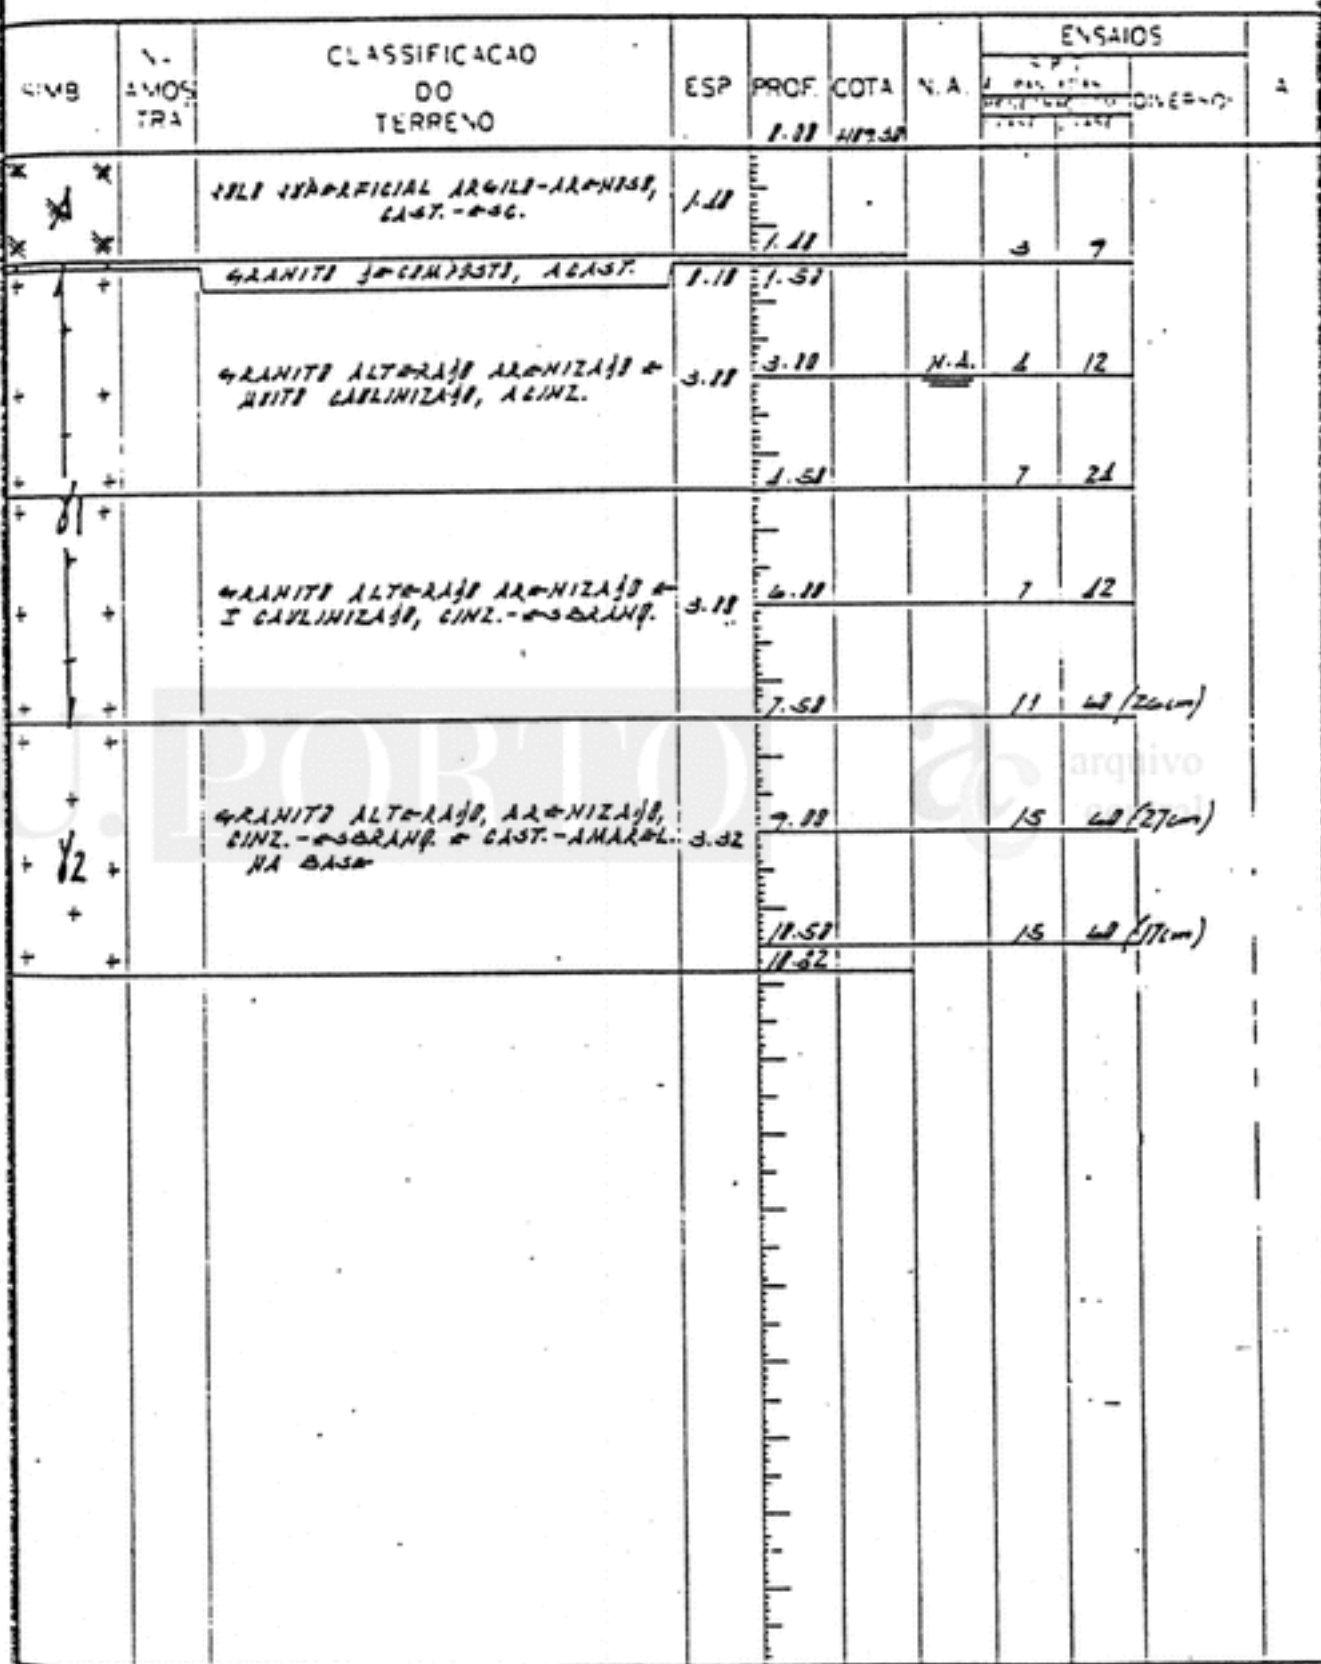 CLASSIFICACAO
DO
TERRENO
SIMB
N.
AMOS
TRA
ESP
PROF.
COTA
N.A.
ENSAIOS
DIVERSOS
A
0.00
SOLO SUPERFICIAL ARGILO-ARENOSO,
CAST.-ESC.
1.40
1.40
3 9
GRANITO DECOMPOSTO, ACAST.
0.10
1.50
GRANITO ALTERADO ARENIZADO E
MUITO CAULINIZADO, ACINZ.
3.00
3.00
N.A.
4 12
4.50
7 24
γ1
GRANITO ALTERADO ARENIZADO E
± CAULINIZADO, CINZ.-ESBRANQ.
3.00
6.00
7
7.50
11 60 (26cm)
U. PORTO
ac arquivo
central
γ2
GRANITO ALTERADO, ARENIZADO,
CINZ.-ESBRANQ. E CAST.-AMAREL.
NA BASE
3.32
9.00
15 60 (27cm)
10.50
15 60 (17cm)
10.82